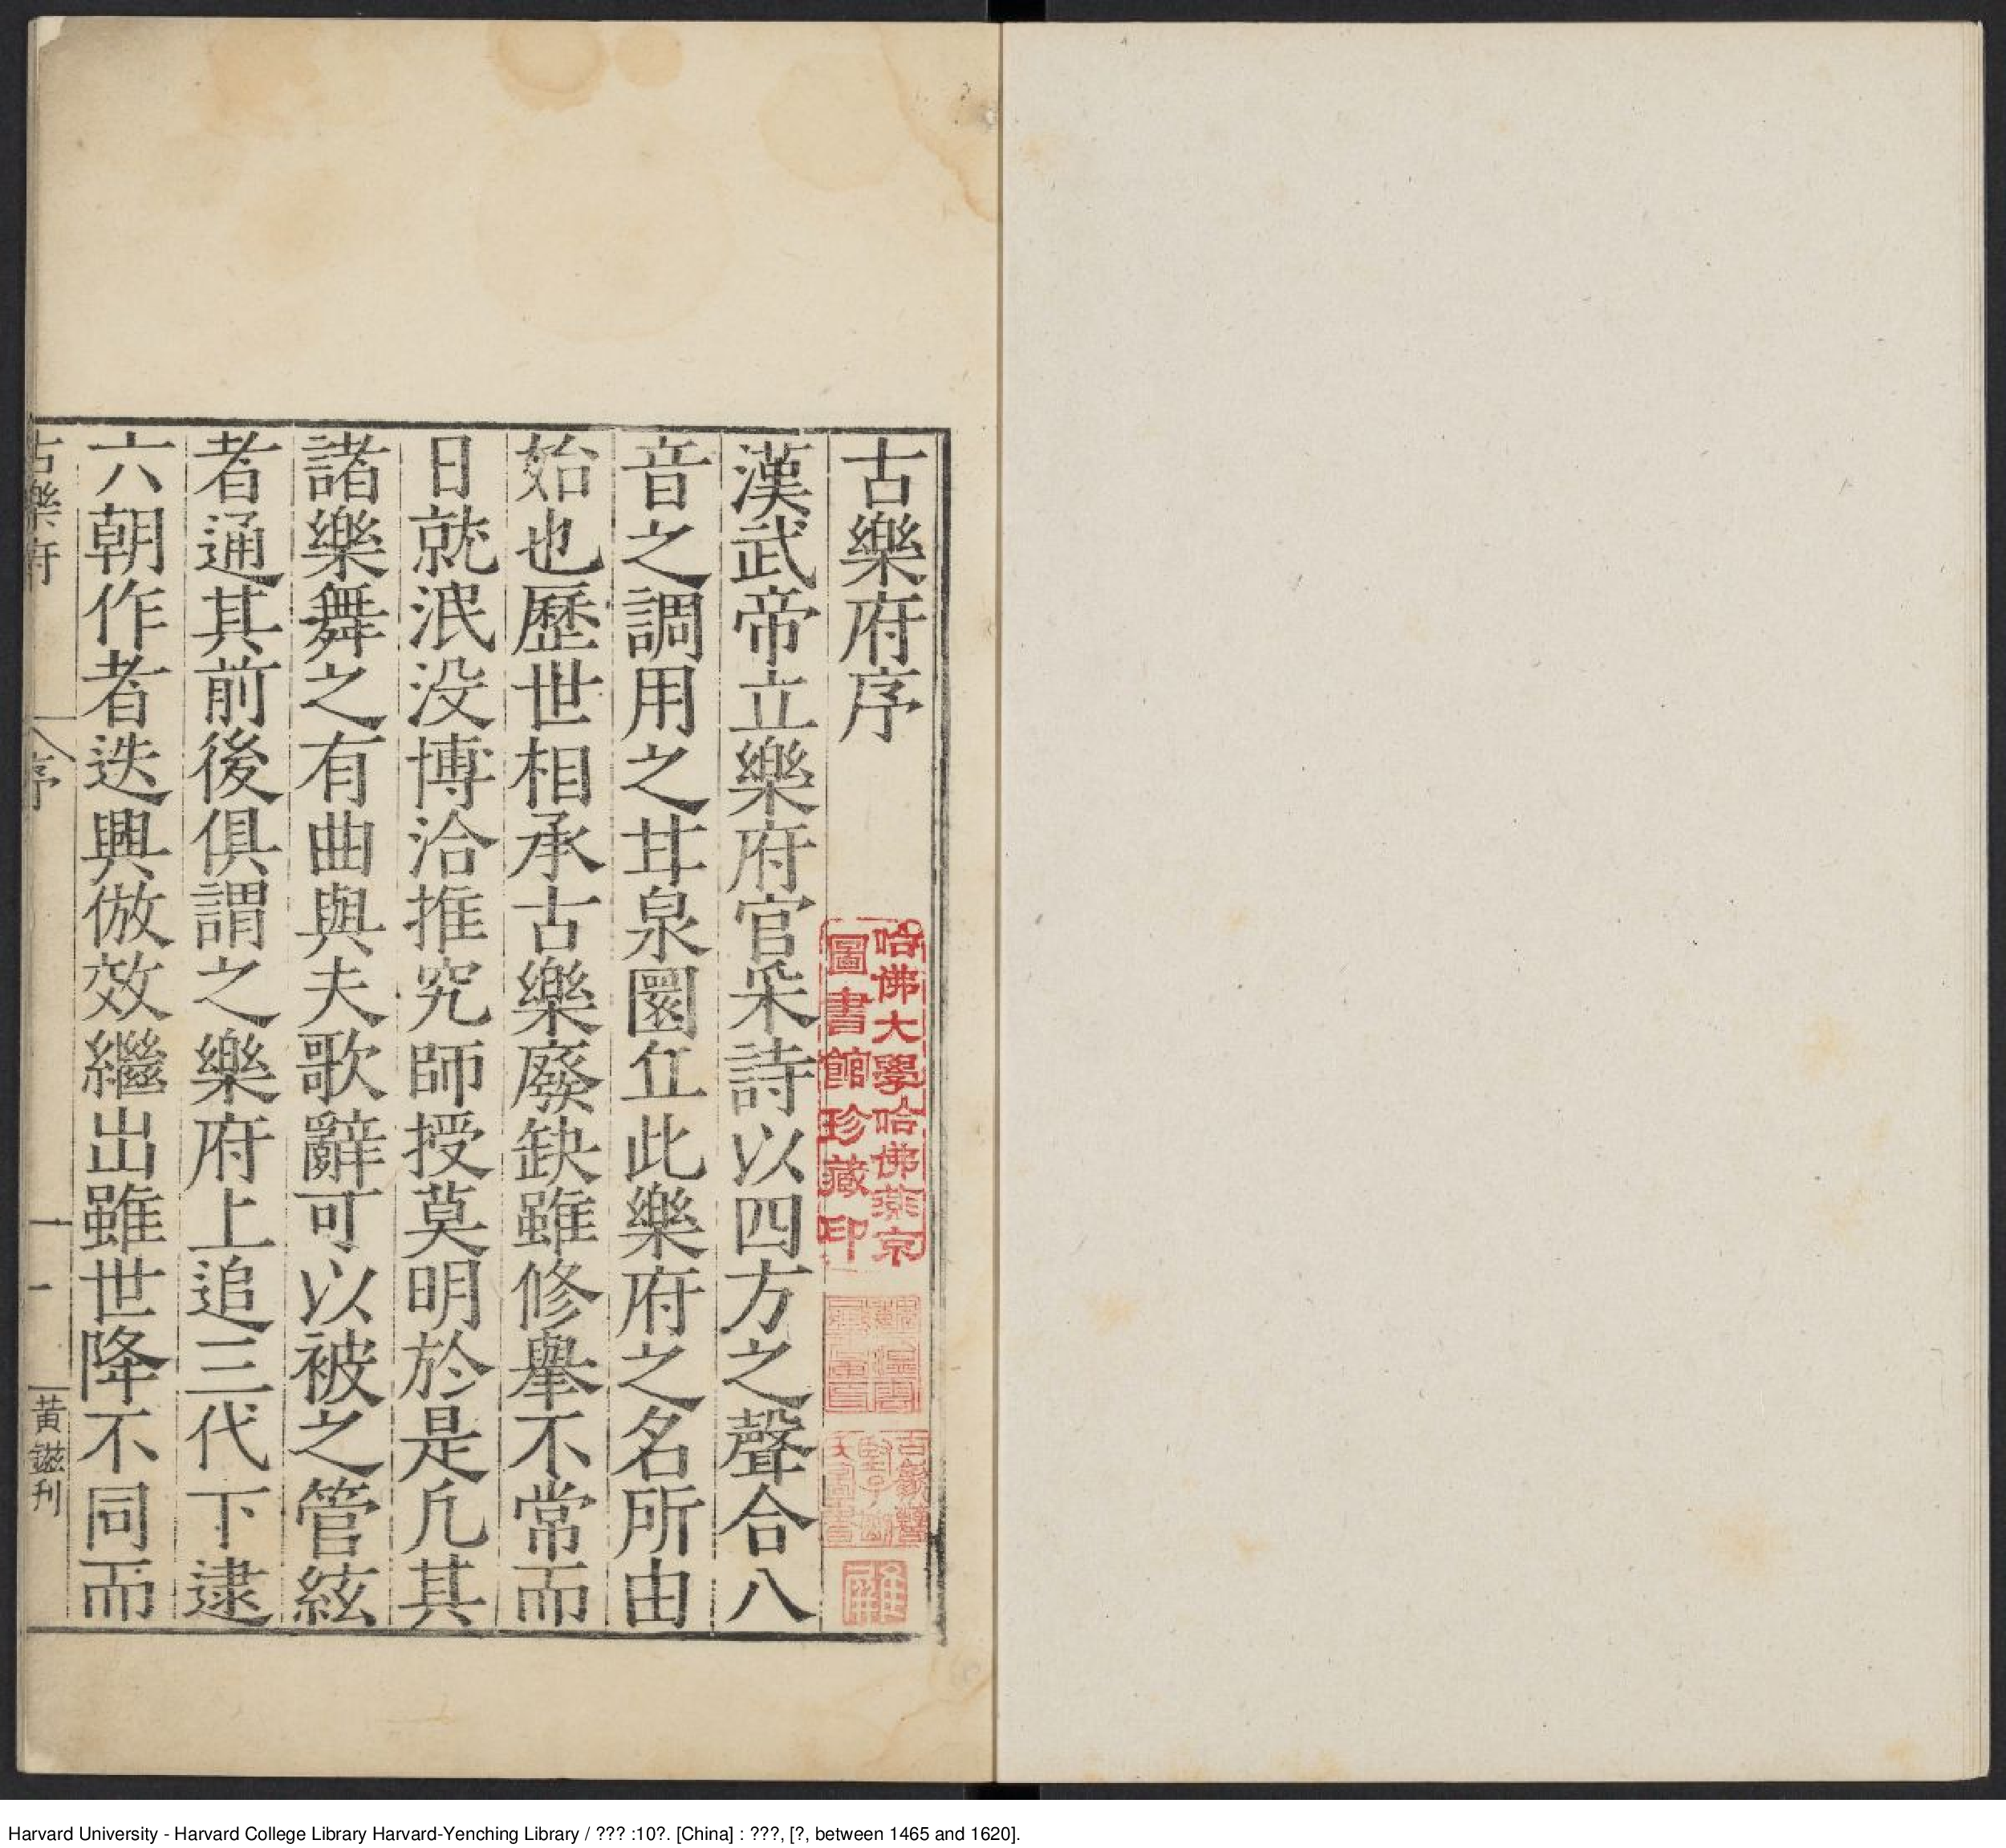 古樂府序
漢武帝立樂府官采詩以四方之聲合八
音之調用之甘泉圜丘此樂府之名所由
始也歷世相承古樂廢缺雖修舉不常而
日就泯没博洽推究師授莫明於是凡其
諸樂舞之有曲與夫歌辭可以被之管絃
者通其前後俱謂之樂府上追三代下逮
六朝作者迭興倣效繼出雖世降不同而
古樂府
序
一
黃鎡刊
哈佛大學哈佛燕京
圖書館珍藏印
Harvard University - Harvard College Library Harvard-Yenching Library / ??? :10?. [China] : ???, [?, between 1465 and 1620].